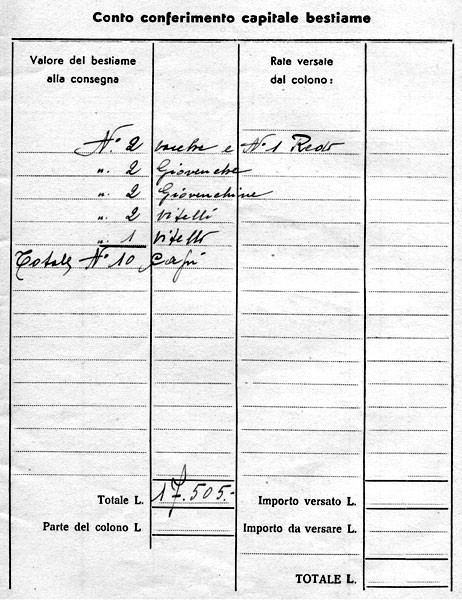 Conto conferimento capitale bestiame
Valore del bestiame
alla consegna
Rate versate
dal colono:
N.° 2 vacche e N° 1 Redo
n. 2 Giovenche
n. 2 Giovenchine
n. 2 Vitelli
n. 1 Vitello
Totale N° 10 Capi
Totale L. 17.505.-
Parte del colono L
Importo versato L.
Importo da versare L.
TOTALE L.